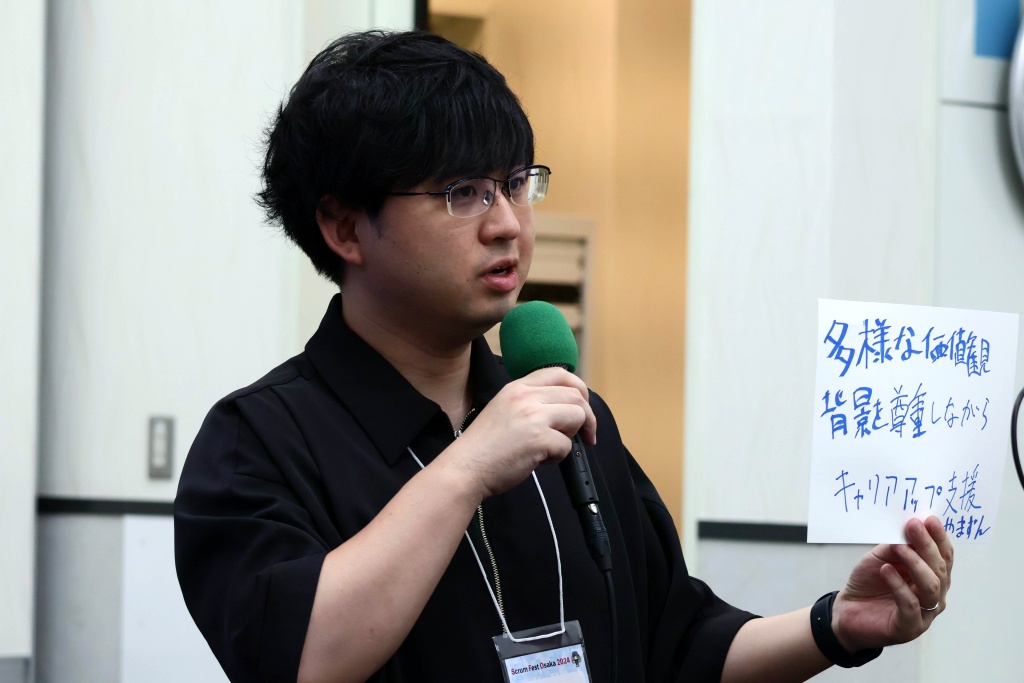 多様な価値観
背景を尊重しながら
キャリアアップ支援
やまずん
Scrum Fest Osaka 2024